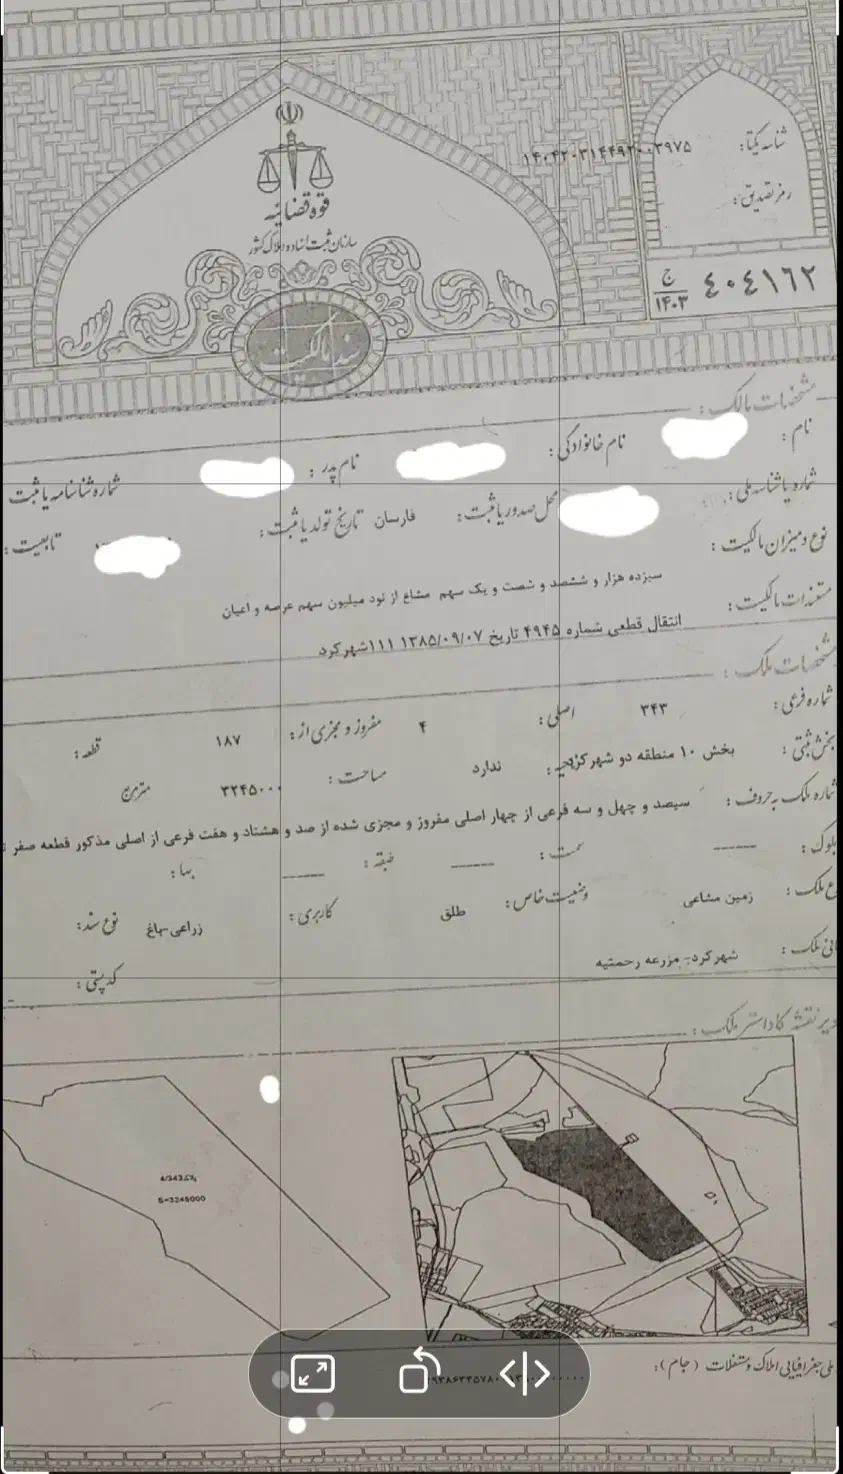 قوه قضائیه
سازمان ثبت اسناد و املاک کشور
سند مالکیت
شناسه یکتا: ۱۴۰۴۲۰۳۱۴۴۹۲۰۰۳۹۷۵
رمز تصدیق:
ج ۱۴۰۳ ٤٠٤١٦٢
مشخصات مالک:
نام: نام خانوادگی: نام پدر: شماره شناسنامه یا ثبت
شماره یا شناسه ملی: محل صدور یا ثبت: فارسان تاریخ تولد یا ثبت: تابعیت:
نوع و میزان مالکیت:
سیزده هزار و ششصد و شصت و یک سهم مشاع از نود میلیون سهم عرصه و اعیان
مستندات مالکیت:
انتقال قطعی شماره ۴۹۴۵ تاریخ ۱۳۸۵/۰۹/۰۷ ۱۱۱شهرکرد
مشخصات ملک:
شماره فرعی: ۳۴۳ اصلی: ۴ مفروز و مجزی از: ۱۸۷ قطعه:
بخش ثبتی: بخش ۱۰ منطقه دو شهرکرد ناحیه: ندارد مساحت: ۳۲۴۵۰۰۰ مترمربع
شماره ملک به حروف: سیصد و چهل و سه فرعی از چهار اصلی مفروز و مجزی شده از صد و هشتاد و هفت فرعی از اصلی مذکور قطعه صفر
بلوک: ----- سمت: ----- طبقه: ----- بها:
ع ملک: زمین مشاعی وضعیت خاص: طلق کاربری: زراعی-باغ نوع سند:
انی ملک: شهرکرد- مزرعه رحمتیه کد پستی:
ویر نقشه کاداستر ملک:
پلاک4/343
S=3245000
ملی جغرافیایی املاک و مستغلات (جام):